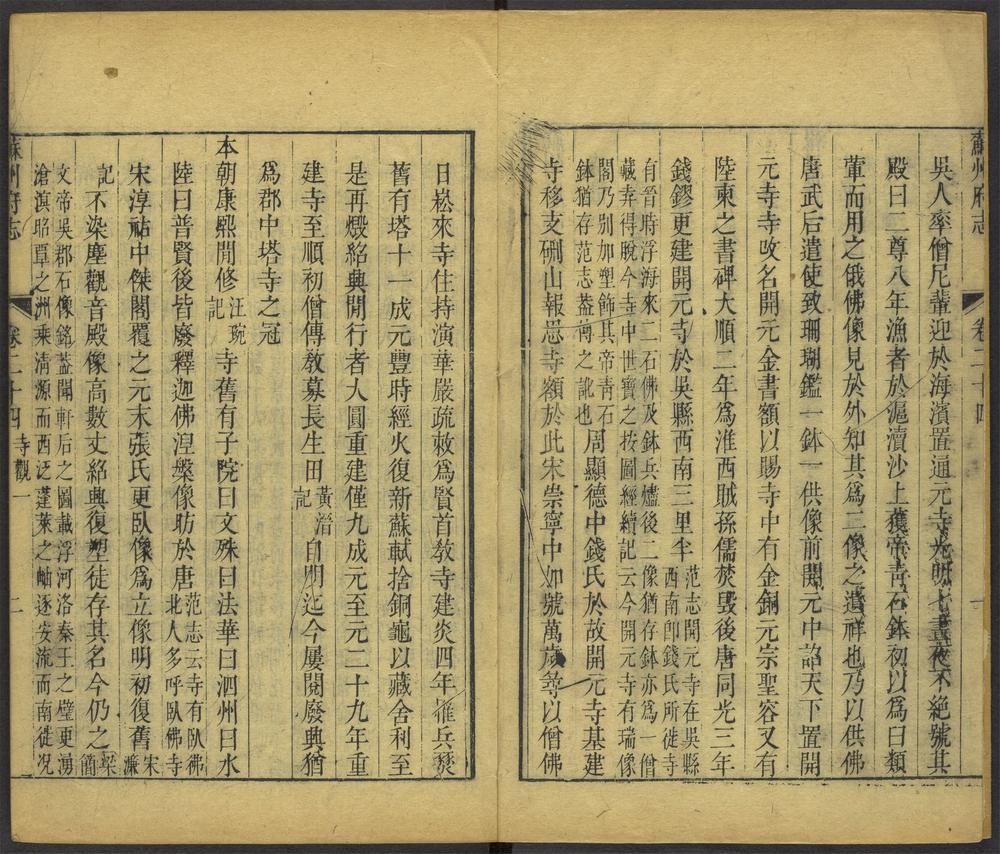 蘇州府志
卷二十四
吳人率僧尼輩迎於海濱置通元寺光明七晝夜不絶號其
殿曰二尊八年漁者於滬瀆沙上獲帝靑石鉢初以爲臼類
葷而用之俄佛像見於外知其爲二像之遺祥也乃以供佛
唐武后遣使致珊瑚鑑一鉢一供像前開元中詔天下置開
元寺寺改名開元金書額以賜寺中有金銅元宗聖容又有
陸柬之書碑大順二年爲淮西賊孫儒焚毁後唐同光三年
錢鏐更建開元寺於吳縣西南三里半
范志開元寺在吳縣
西南卽錢氏所徙寺
自晉時浮海來二石佛及鉢兵燼後二像猶存鉢亦爲一僧
藏弆得脫今寺中世寶之按圖經續記云今開元寺有瑞像
閣乃別加塑飾其帝靑石
鉢猶存范志蓋傳之訛也
周顯德中錢氏於故開元寺基建
寺移支硎山報恩寺額於此宋崇寧中加號萬歲尋以僧佛
日崧來寺住持演華嚴疏敕爲賢首教寺建炎四年罹兵燹
舊有塔十一成元豐時經火復新蘇軾捨銅龜以藏舍利至
是再燬紹興閒行者大圓重建僅九成元至元二十九年重
建寺至順初僧傳教募長生田
黃溍
記
自明迄今屢閱廢興猶
爲郡中塔寺之冠
本朝康熙閒修
汪琬
記
寺舊有子院曰文殊曰法華曰泗州曰水
陸曰普賢後皆廢釋迦佛湼槃像昉於唐
范志云寺有臥佛
北人多呼臥佛寺
宋淳祐中傑閣覆之元末張氏更臥像爲立像明初復舊
宋
濂
記
不染塵觀音殿像高數丈紹興復塑徒存其名今仍之
梁
簡
文帝吳郡石像銘蓋聞軒后之圖載浮河洛秦王之璧更湧
滄溟昭覃之洲乘淸源而西泛蓬萊之岫逐安流而南徙况
蘇州府志
卷二十四
寺觀一
二